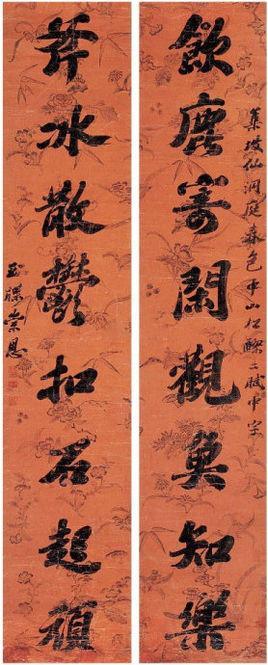 集坡仙洞庭春色中山松醪二賦中字
飲鹿寄閑觀魚知樂
斧冰散鬱扣石起頑
玉牒崇恩